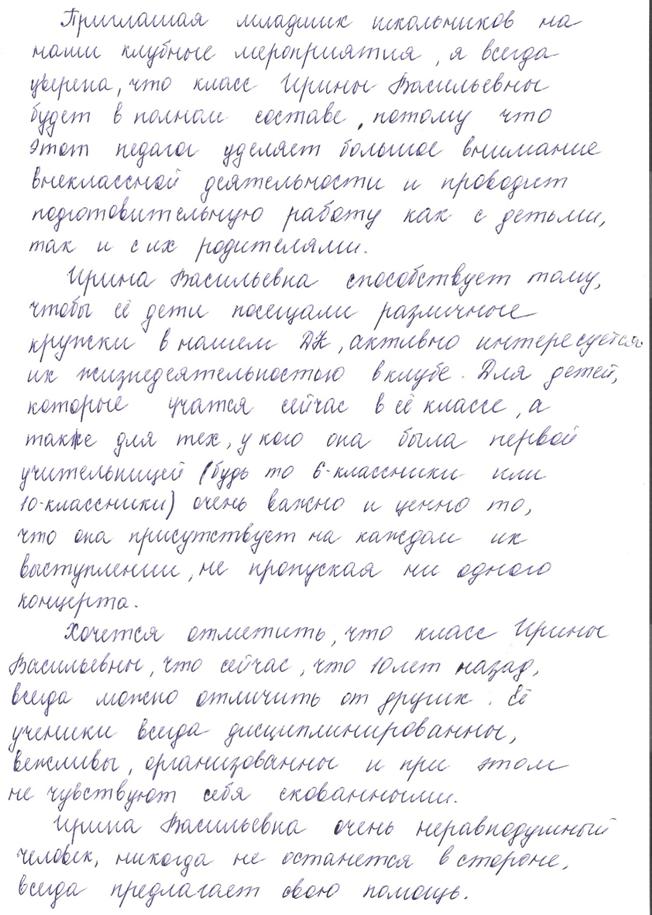 Приглашая младших школьников на
наши клубные мероприятия, я всегда
уверена, что класс Ирины Васильевны
будет в полном составе, потому что
этот педагог уделяет большое внимание
внеклассной деятельности и проводит
подготовительную работу как с детьми,
так и с их родителями.
Ирина Васильевна способствует тому,
чтобы её дети посещали различные
кружки в нашем ДК, активно интересуется
их жизнедеятельностью в клубе. Для детей,
которые учатся сейчас в её классе, а
также для тех, у кого она была первой
учительницей (будь то 6-классники или
10-классники) очень важно и ценно то,
что она присутствует на каждом их
выступлении, не пропуская ни одного
концерта.
Хочется отметить, что класс Ирины
Васильевны, что сейчас, что 10 лет назад,
всегда можно отличить от других. Её
ученики всегда дисциплинированны,
вежливы, организованны и при этом
не чувствуют себя скованными.
Ирина Васильевна очень неравнодушный
человек, никогда не останется в стороне,
всегда предлагает свою помощь.